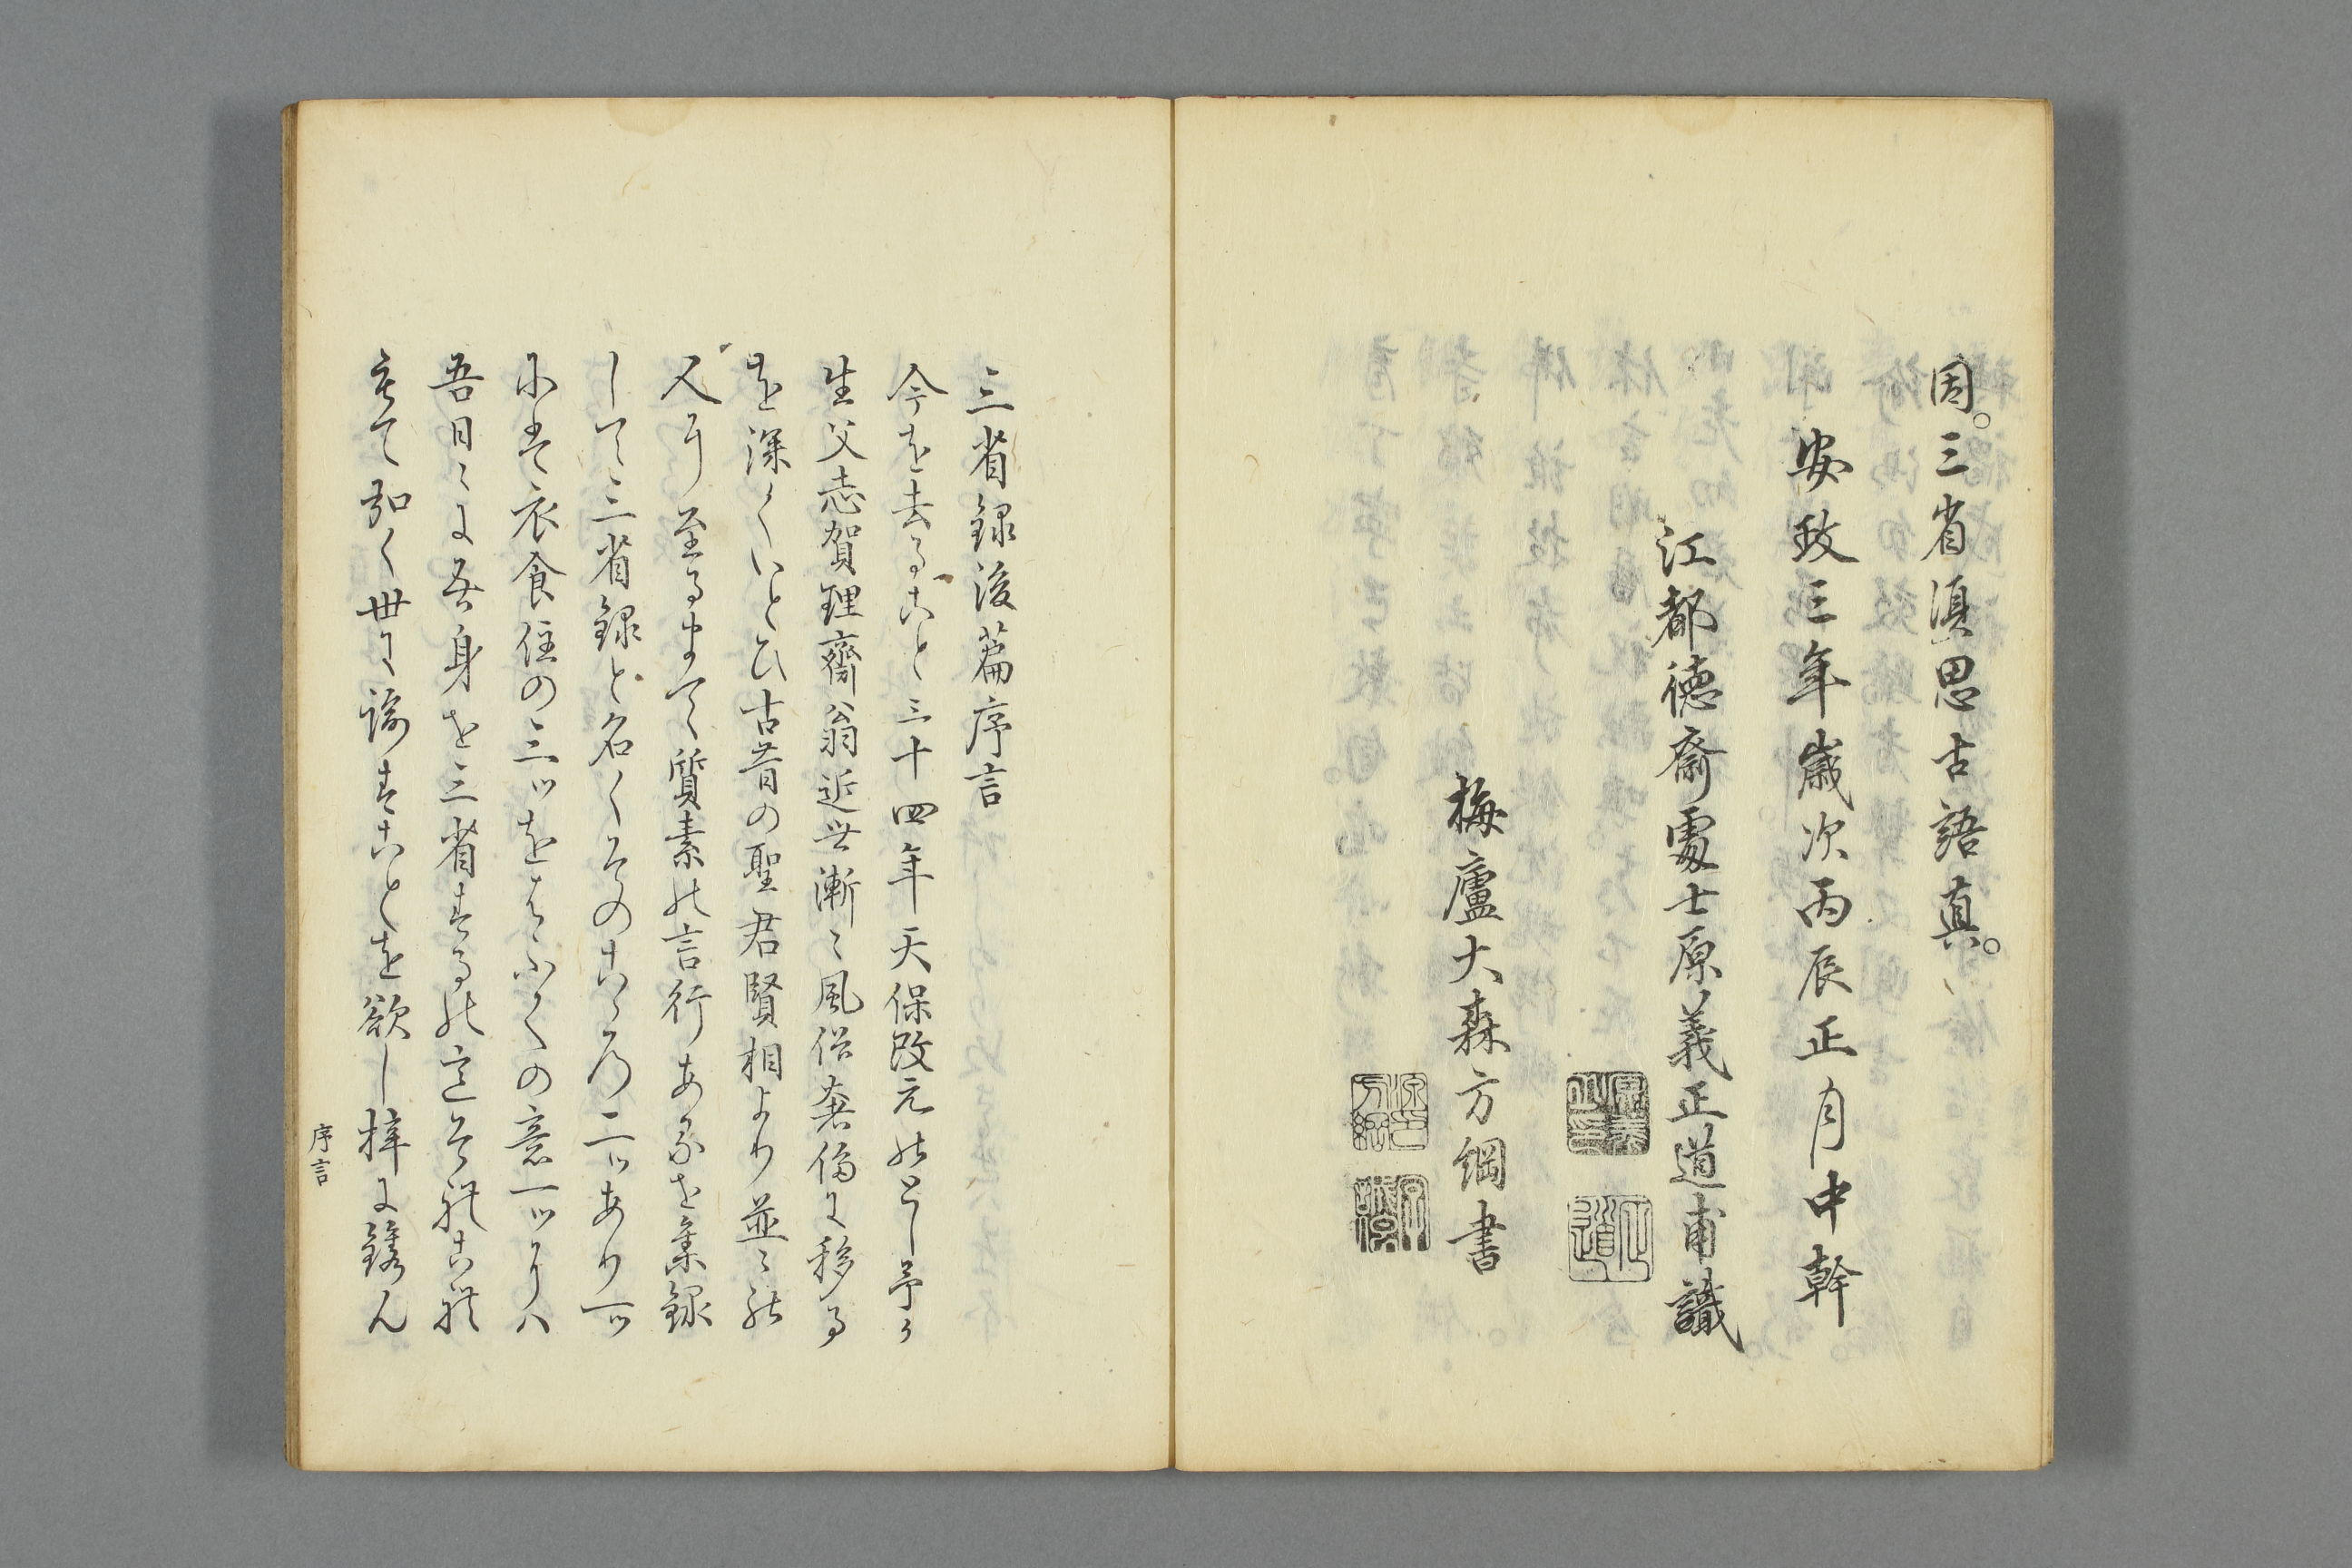 因。三省滇思古語真。
安政三年歳次丙辰正月中幹
江都徳齋處士原義正道甫識
梅廬大森方綱書
三省録後篇序言
今を去ること三十四年天保改元のとし予か
生父志賀理齋翁近世漸〻風俗奢侈に移る
を深くいとひ古昔の聖君賢相より並〻の
人に至るまて質素の言行あるを集録
して三省録と名くその二ッあり一ッ
にハ衣食住の三ッをはふくの意一ッにハ
吾日〻に吾身を三省するの
て弘く世に諭すことを欲し梓に鐫ん
序言